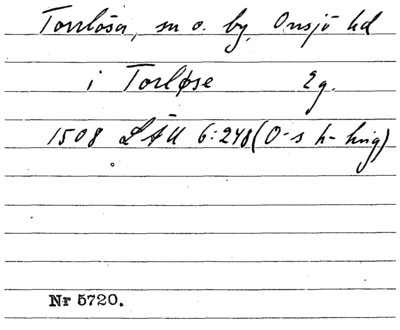 Torrlösa, sn o. by, Onsjö hd
i Torløse 2 g.
1508 LÄU 6:248 (O-s h-hrig)
Nr 5720.